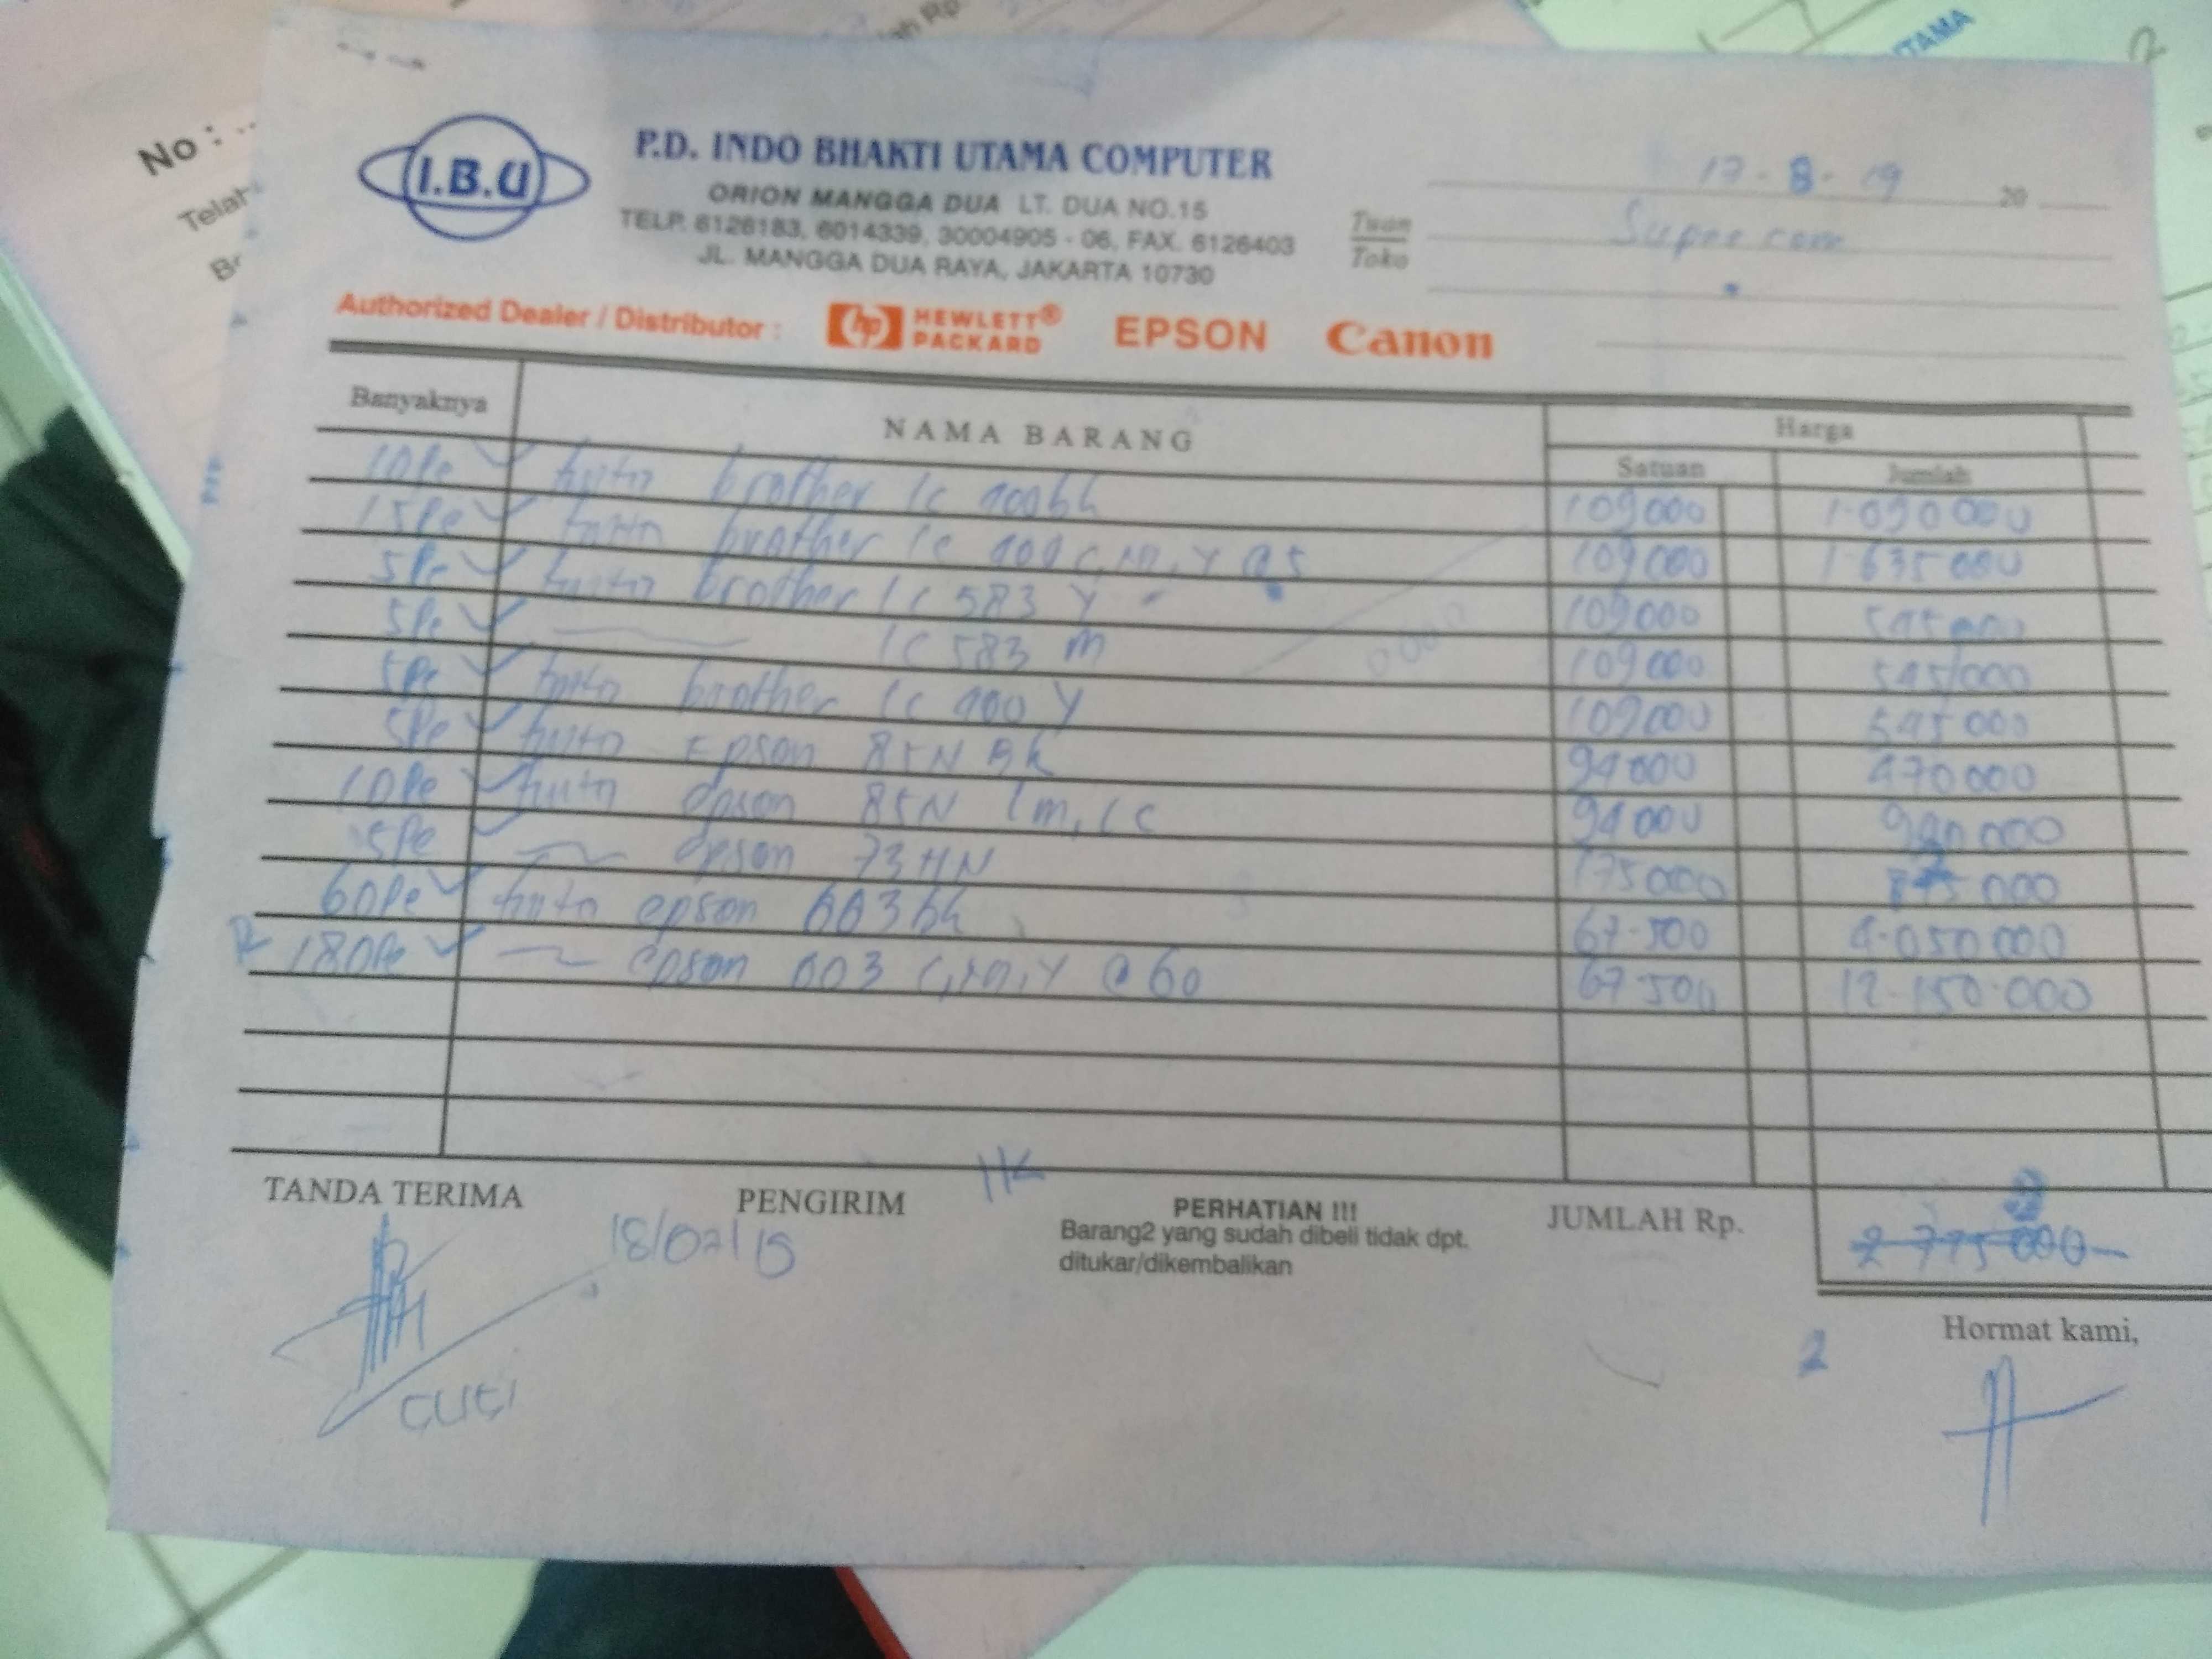 No : ..
Telah
ah Rp.
UTAMA
2
I.B.U
P.D. INDO BHAKTI UTAMA COMPUTER
ORION MANGGA DUA LT. DUA NO.15
TELP. 6126183, 6014339, 30004905 - 06, FAX. 6126403
JL. MANGGA DUA RAYA, JAKARTA 10730
17-8-19 20
Tuan
Toko
Authorized Dealer / Distributor : hp HEWLETT® PACKARD EPSON Canon
Banyaknya NAMA BARANG Harga
Satuan Jumlah
10Pc brother lc 400bk 109000 1.090000
15Pc brother lc 400 c,m,y @5 109000 1.635000
5Pc brother lc 583 Y 109000 545000
5Pc lc 583 m 109000 545000
5Pc brother lc 400 Y 109000 545000
5Pc Epson 85N Bk 94000 470000
10Pc epson 85N lm, lc 94000 940000
5Pc epson 73HN 175000 875000
60Pc epson 003bk 67.500 4.050000
180Pc epson 003 c,m,y @60 67.500 12.150.000
TANDA TERIMA PENGIRIM PERHATIAN !!! JUMLAH Rp.
Barang2 yang sudah dibeli tidak dpt.
ditukar/dikembalikan
Hormat kami,
2